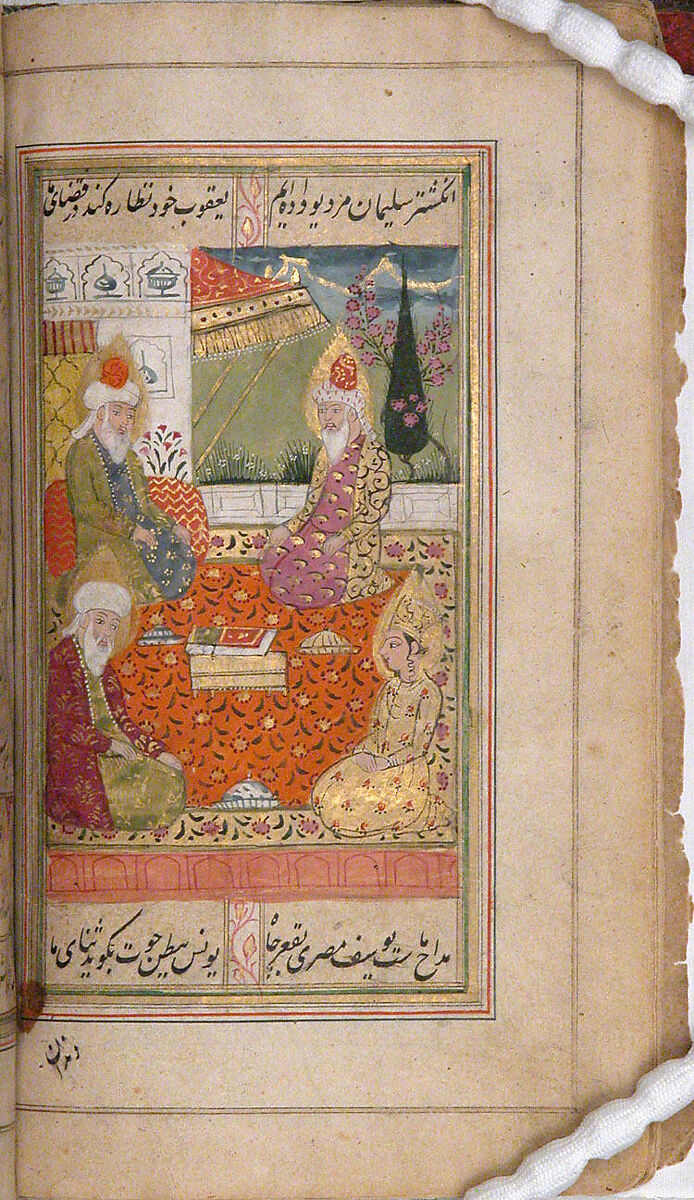 انگشتر سلیمان مر دیو داده‌ایم یعقوب خود نظاره کند در قضای ما
مداح ماست یوسف مصری بقعر چاه یونس ببطن حوت بگوید ثنای ما